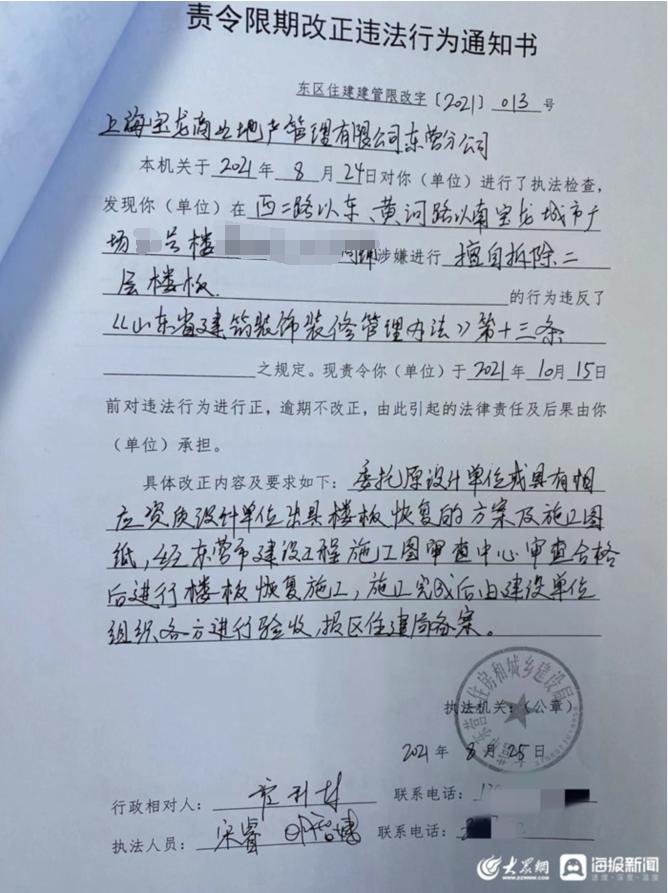 责令限期改正违法行为通知书
东区住建建管限改字〔2021〕013号
上海宝龙商业地产管理有限公司东营分公司
本机关于2021年8月24日对你（单位）进行了执法检查，
发现你（单位）在西二路以东、黄河路以南宝龙城市广
场 号楼 涉嫌进行擅自拆除二
层楼板 的行为违反了
《山东省建筑装饰装修管理办法》第十三条
之规定。现责令你（单位）于2021年10月15日
前对违法行为进行正，逾期不改正，由此引起的法律责任及后果由你
（单位）承担。
具体改正内容及要求如下：委托原设计单位或具有相
应资质设计单位出具楼板恢复的方案及施工图
纸，经东营市建设工程施工图审查中心审查合格
后进行楼板恢复施工，施工完成后由建设单位
组织各方进行验收，报区住建局备案。
执法机关：（公章）
住房和城乡建设局
2021年8月25日
行政相对人： 联系电话：
执法人员：宋睿 联系电话：
大众网 海报新闻
www.dzwww.com 速度·深度·温度